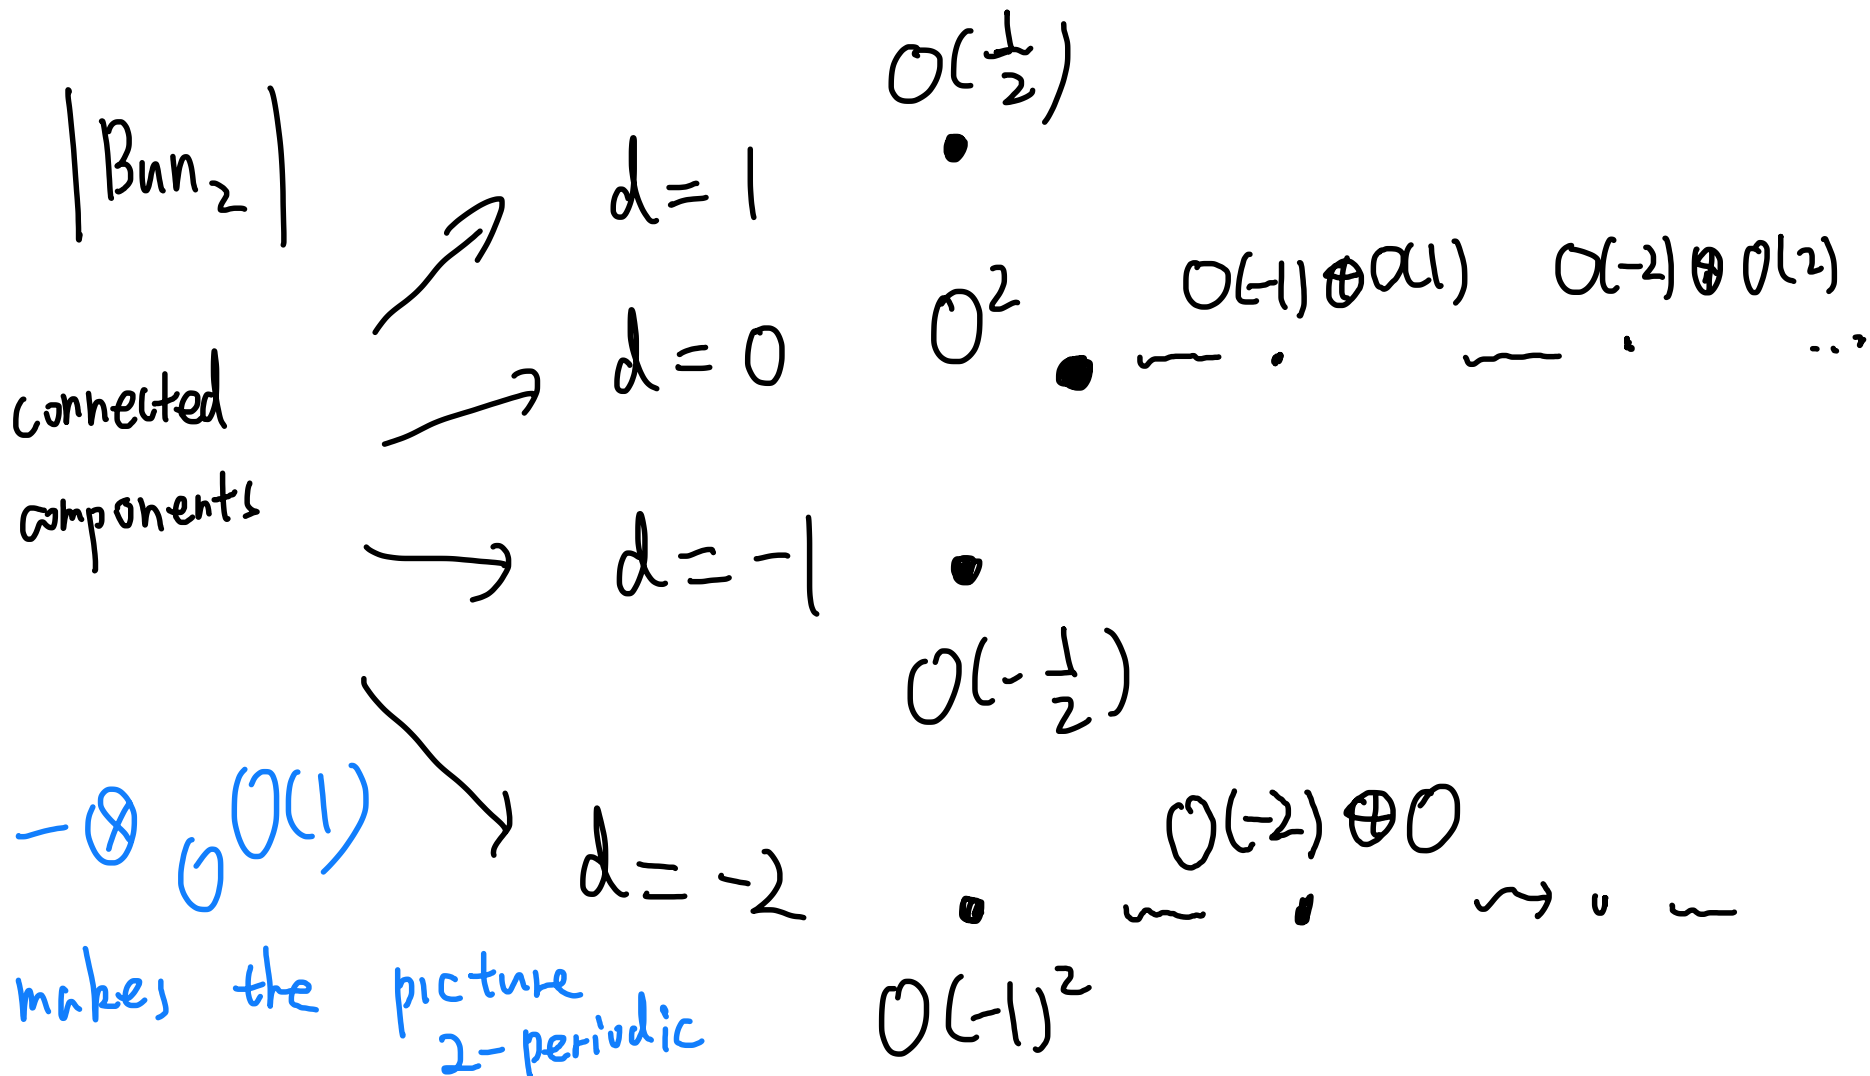 |Bun₂|
connected
components
O(1/2)
d = 1
d = 0 O² O(-1) ⊕ O(1) O(-2) ⊕ O(2) ...
d = -1
O(-1/2)
d = -2 O(-2) ⊕ O
O(-1)²
- ⊗_O O(1)
makes the picture
2-periodic